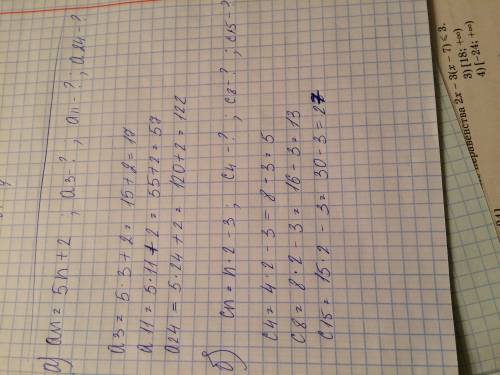 а) an = 5n + 2 ; a3 ? , an - ? ; a24 - ?
a3 = 5 · 3 + 2 = 15 + 2 = 17
a11 = 5 · 11 + 2 = 55 + 2 = 57
a24 = 5 · 24 + 2 = 120 + 2 = 122
б) cn = n · 2 - 3 ; c4 - ? ; c8 - ? ; c15 - ?
c4 = 4 · 2 - 3 = 8 - 3 = 5
c8 = 8 · 2 - 3 = 16 - 3 = 13
c15 = 15 · 2 - 3 = 30 - 3 = 27
неравенства 2x − 3(x − 7) ≤ 3.
3) [18; +∞)
4) [-24; +∞)